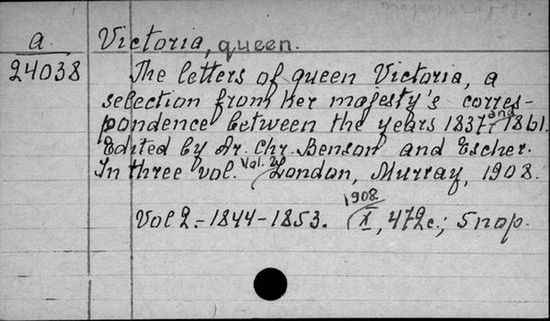 a
24038
Victoria, queen.
The letters of queen Victoria, a
selection from her majesty's corres-
pondence between the years 1837 and 1861.
Edited by Ar. Chr. Benson and Escher.
In three vol. Vol. 2 London, Murray, 1908.
Vol 2.-1844-1853. 1908
X, 472c.; 5 пор.